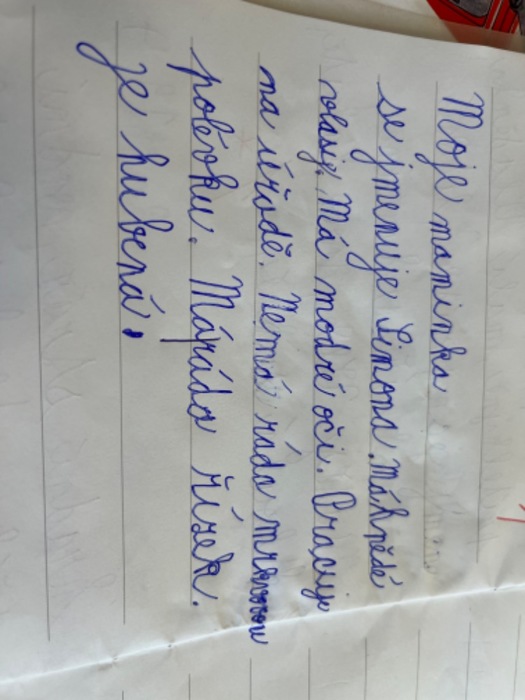 Moje maminka
se jmenuje Simona. Má hnědé
vlasy. Má modré oči. Pracuje
na úřadě. Nemá ráda mrkvovou
polévku. Má ráda řízek.
je hubená.